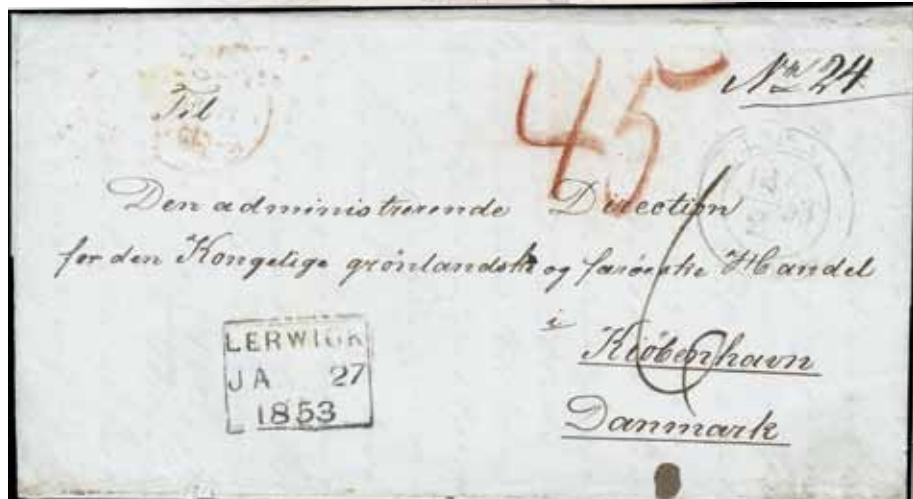 45
No 24
Til
Den administrerende Direction
for den Kongelige grönlandske og færöeske Handel
i
Kiöbenhavn
Danmark
6
LERWICK
JA 27
1853